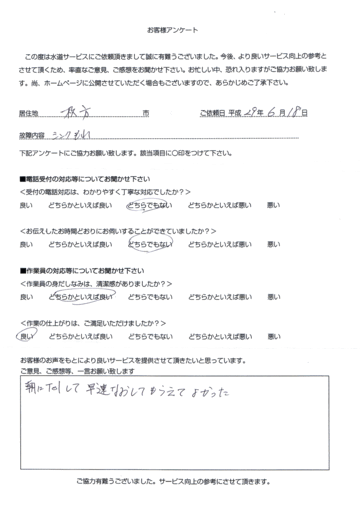 お客様アンケート
この度は水道サービスにご依頼頂きまして誠に有難うございました。今後、より良いサービス向上の参考と
させて頂くため、率直なご意見、ご感想をお聞かせ下さい。お忙しい中、恐れ入りますがご協力お願い致しま
す。尚、ホームページに公開させていただく場合もございますので、あらかじめご了承下さい。
居住地 枚方 市 ご依頼日 平成 29 年 6 月 18 日
故障内容 シンクもれ
下記アンケートにご協力お願い致します。該当項目に〇印をつけて下さい。
■電話受付の対応等についてお聞かせ下さい
<受付の電話対応は、わかりやすく丁寧な対応でしたか?>
良い どちらかといえば良い どちらでもない どちらかといえば悪い 悪い
<お伝えしたお時間どおりにお伺いすることができていましたか?>
良い どちらかといえば良い どちらでもない どちらかといえば悪い 悪い
■作業員の対応等についてお聞かせ下さい
<作業員の身だしなみは、清潔感がありましたか?>
良い どちらかといえば良い どちらでもない どちらかといえば悪い 悪い
<作業の仕上がりは、ご満足いただけましたか?>
良い どちらかといえば良い どちらでもない どちらかといえば悪い 悪い
お客様のお声をもとにより良いサービスを提供させて頂きたいと思っています。
ご意見、ご感想等、一言お願い致します
朝にTelして早速なおしてもらえてよかった
ご協力有難うございました。サービス向上の参考にさせて頂きます。